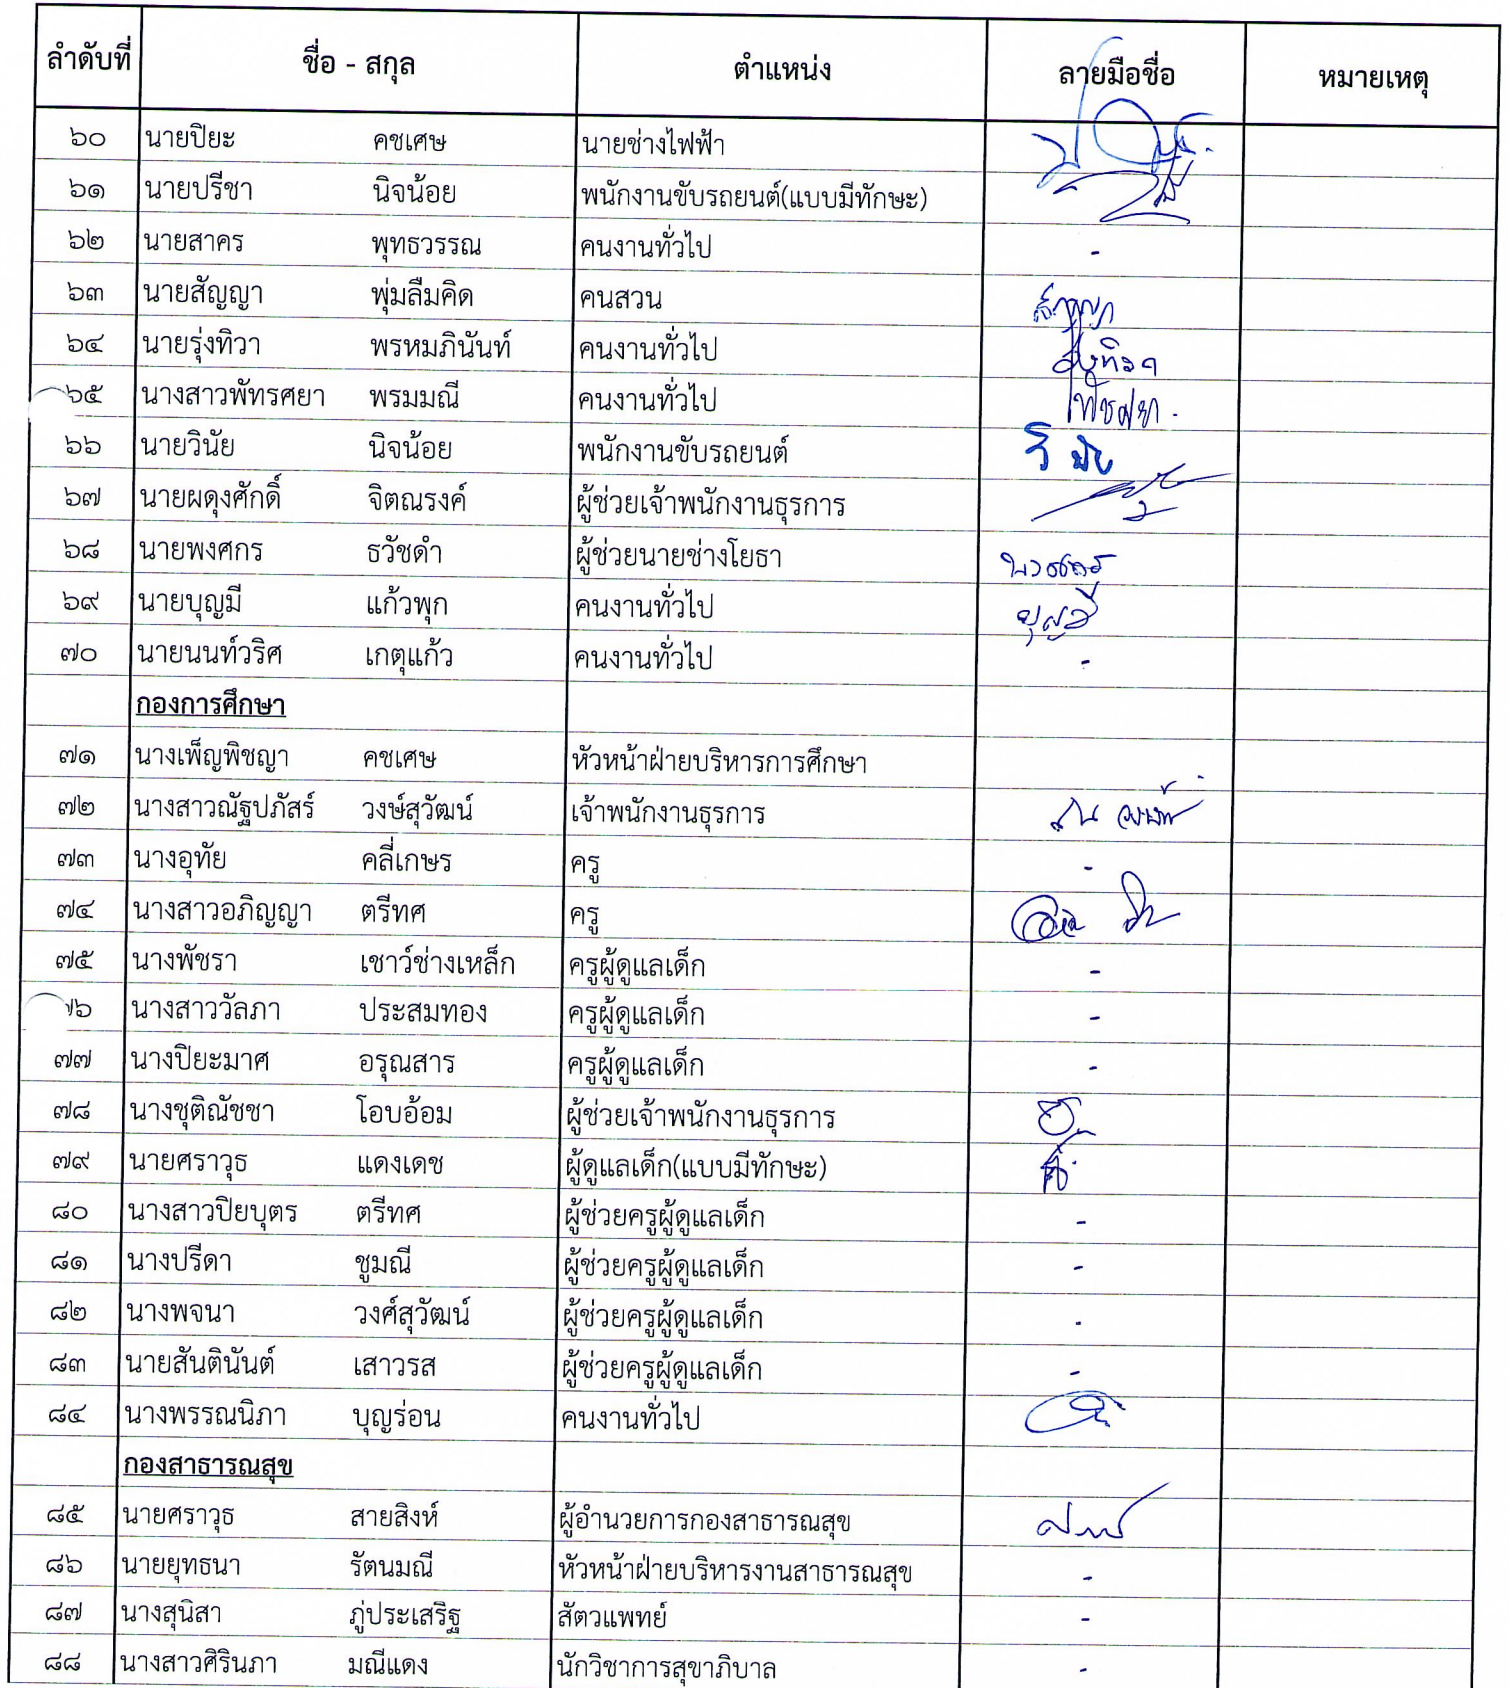 ลำดับที่ ชื่อ - สกุล ตำแหน่ง ลายมือชื่อ หมายเหตุ
๖๐ นายปิยะ คชเศษ นายช่างไฟฟ้า
๖๑ นายปรีชา นิจน้อย พนักงานขับรถยนต์(แบบมีทักษะ)
๖๒ นายสาคร พุทธวรรณ คนงานทั่วไป -
๖๓ นายสัญญา พุ่มลืมคิด คนสวน สัญญา
๖๔ นายรุ่งทิวา พรหมภินันท์ คนงานทั่วไป รุ่งทิวา
๖๕ นางสาวพัทรศยา พรมมณี คนงานทั่วไป
๖๖ นายวินัย นิจน้อย พนักงานขับรถยนต์ วินัย
๖๗ นายผดุงศักดิ์ จิตณรงค์ ผู้ช่วยเจ้าพนักงานธุรการ
๖๘ นายพงศกร ธวัชดำ ผู้ช่วยนายช่างโยธา
๖๙ นายบุญมี แก้วพุก คนงานทั่วไป บุญมี
๗๐ นายนนท์วริศ เกตุแก้ว คนงานทั่วไป -
กองการศึกษา
๗๑ นางเพ็ญพิชญา คชเศษ หัวหน้าฝ่ายบริหารการศึกษา
๗๒ นางสาวณัฐปภัสร์ วงษ์สุวัฒน์ เจ้าพนักงานธุรการ
๗๓ นางอุทัย คลี่เกษร ครู -
๗๔ นางสาวอภิญญา ตรีทศ ครู
๗๕ นางพัชรา เชาว์ช่างเหล็ก ครูผู้ดูแลเด็ก -
๗๖ นางสาววัลภา ประสมทอง ครูผู้ดูแลเด็ก -
๗๗ นางปิยะมาศ อรุณสาร ครูผู้ดูแลเด็ก -
๗๘ นางชุติณัชชา โอบอ้อม ผู้ช่วยเจ้าพนักงานธุรการ
๗๙ นายศราวุธ แดงเดช ผู้ดูแลเด็ก(แบบมีทักษะ)
๘๐ นางสาวปิยบุตร ตรีทศ ผู้ช่วยครูผู้ดูแลเด็ก -
๘๑ นางปรีดา ชูมณี ผู้ช่วยครูผู้ดูแลเด็ก -
๘๒ นางพจนา วงศ์สุวัฒน์ ผู้ช่วยครูผู้ดูแลเด็ก -
๘๓ นายสันตินันต์ เสาวรส ผู้ช่วยครูผู้ดูแลเด็ก -
๘๔ นางพรรณนิภา บุญร่อน คนงานทั่วไป
กองสาธารณสุข
๘๕ นายศราวุธ สายสิงห์ ผู้อำนวยการกองสาธารณสุข
๘๖ นายยุทธนา รัตนมณี หัวหน้าฝ่ายบริหารงานสาธารณสุข -
๘๗ นางสุนิสา ภู่ประเสริฐ สัตวแพทย์ -
๘๘ นางสาวศิรินภา มณีแดง นักวิชาการสุขาภิบาล -